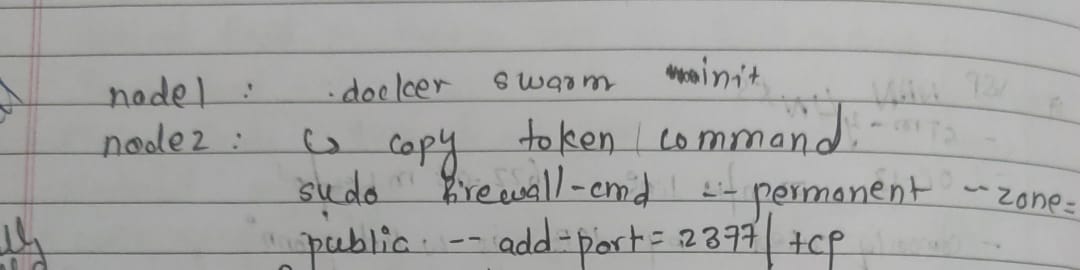 node1 : docker swarm init
node2 : ↳ copy token / command.
sudo firewall-cmd --permanent --zone=
public --add-port=2377/tcp